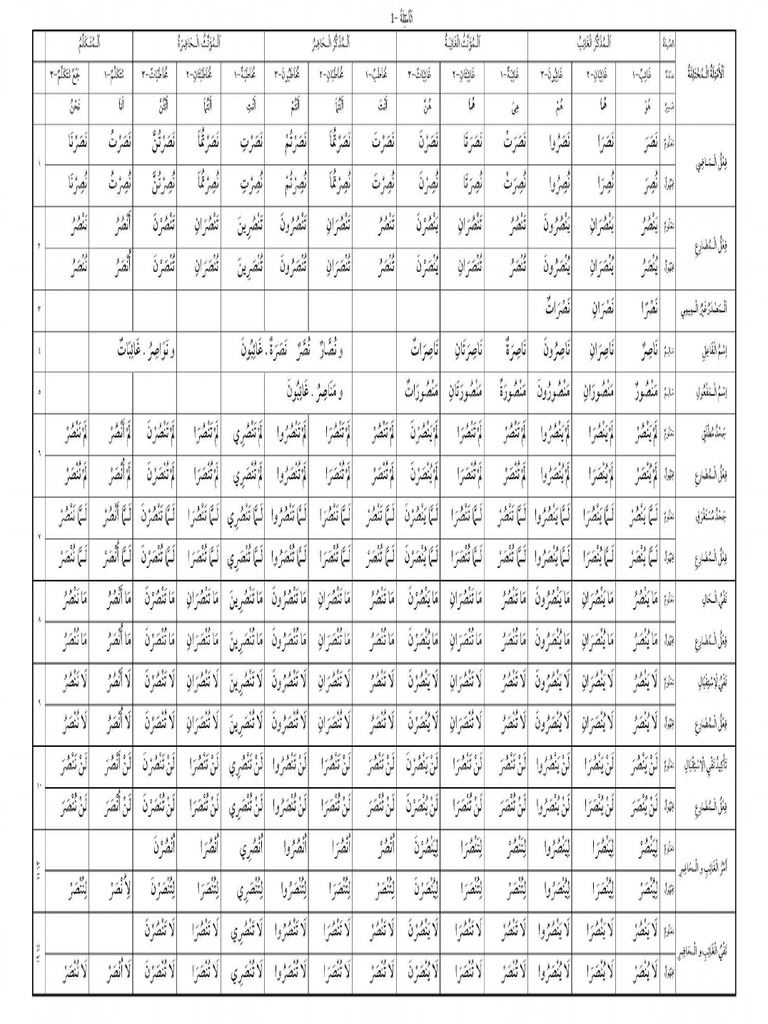 اَمْثِلَةٌ -1
اَلْأَمْثِلَةُ الْمُخْتَلِفَةُ اَلْمُذَكَّرُ الْغَائِبُ اَلْمُؤَنَّثُ الْغَائِبَةُ اَلْمُذَكَّرُ الْحَاضِرُ اَلْمُؤَنَّثُ الْحَاضِرَةُ اَلْمُتَكَلِّمُ
غَائِبٌ-١ غَائِبَانِ-٢ غَائِبُونَ-٣ غَائِبَةٌ-١ غَائِبَتَانِ-٢ غَائِبَاتٌ-٣ مُخَاطَبٌ-١ مُخَاطَبَانِ-٢ مُخَاطَبُونَ-٣ مُخَاطَبَةٌ-١ مُخَاطَبَتَانِ-٢ مُخَاطَبَاتٌ-٣ مُتَكَلِّمٌ-١ جَمْعُ مُتَكَلِّمٍ-٣
هُوَ هُمَا هُمْ هِيَ هُمَا هُنَّ اَنْتَ اَنْتُمَا اَنْتُمْ اَنْتِ اَنْتُمَا اَنْتُنَّ اَنَا نَحْنُ
فِعْلُ الْمَاضِي ١
نَصَرَ نَصَرَا نَصَرُوا نَصَرَتْ نَصَرَتَا نَصَرْنَ نَصَرْتَ نَصَرْتُمَا نَصَرْتُمْ نَصَرْتِ نَصَرْتُمَا نَصَرْتُنَّ نَصَرْتُ نَصَرْنَا
نُصِرَ نُصِرَا نُصِرُوا نُصِرَتْ نُصِرَتَا نُصِرْنَ نُصِرْتَ نُصِرْتُمَا نُصِرْتُمْ نُصِرْتِ نُصِرْتُمَا نُصِرْتُنَّ نُصِرْتُ نُصِرْنَا
فِعْلُ الْمُضَارِعِ ٢
يَنْصُرُ يَنْصُرَانِ يَنْصُرُونَ تَنْصُرُ تَنْصُرَانِ يَنْصُرْنَ تَنْصُرُ تَنْصُرَانِ تَنْصُرُونَ تَنْصُرِينَ تَنْصُرَانِ تَنْصُرْنَ اَنْصُرُ نَنْصُرُ
يُنْصَرُ يُنْصَرَانِ يُنْصَرُونَ تُنْصَرُ تُنْصَرَانِ يُنْصَرْنَ تُنْصَرُ تُنْصَرَانِ تُنْصَرُونَ تُنْصَرِينَ تُنْصَرَانِ تُنْصَرْنَ اُنْصَرُ نُنْصَرُ
اَلْمَصْدَرُ غَيْرُ الْمِيمِي نَصْرًا نَصْرَانِ نَصْرَاتٌ ٣
اِسْمُ الْفَاعِلِ نَاصِرٌ نَاصِرَانِ نَاصِرُونَ نَاصِرَةٌ نَاصِرَتَانِ نَاصِرَاتٌ و نُصَّارٌ نُصَّرٌ نَصَرَةٌ . غَائِبُونَ و نَوَاصِرُ . غَائِبَاتٌ ٤
اِسْمُ الْمَفْعُولِ مَنْصُورٌ مَنْصُورَانِ مَنْصُورُونَ مَنْصُورَةٌ مَنْصُورَتَانِ مَنْصُورَاتٌ و مَنَاصِرُ . غَائِبُونَ ٥
جَحْدُ مُطْلَقِ ٦
لَمْ يَنْصُرْ لَمْ يَنْصُرَا لَمْ يَنْصُرُوا لَمْ تَنْصُرْ لَمْ تَنْصُرَا لَمْ يَنْصُرْنَ لَمْ تَنْصُرْ لَمْ تَنْصُرَا لَمْ تَنْصُرُوا لَمْ تَنْصُرِي لَمْ تَنْصُرَا لَمْ تَنْصُرْنَ لَمْ اَنْصُرْ لَمْ نَنْصُرْ
فِعْلُ الْمُضَارِعِ
لَمْ يُنْصَرْ لَمْ يُنْصَرَا لَمْ يُنْصَرُوا لَمْ تُنْصَرْ لَمْ تُنْصَرَا لَمْ يُنْصَرْنَ لَمْ تُنْصَرْ لَمْ تُنْصَرَا لَمْ تُنْصَرُوا لَمْ تُنْصَرِي لَمْ تُنْصَرَا لَمْ تُنْصَرْنَ لَمْ اُنْصَرْ لَمْ نُنْصَرْ
جَحْدُ مُسْتَغْرَقِ ٧
لَمَّا يَنْصُرْ لَمَّا يَنْصُرَا لَمَّا يَنْصُرُوا لَمَّا تَنْصُرْ لَمَّا تَنْصُرَا لَمَّا يَنْصُرْنَ لَمَّا تَنْصُرْ لَمَّا تَنْصُرَا لَمَّا تَنْصُرُوا لَمَّا تَنْصُرِي لَمَّا تَنْصُرَا لَمَّا تَنْصُرْنَ لَمَّا اَنْصُرْ لَمَّا نَنْصُرْ
فِعْلُ الْمُضَارِعِ
لَمَّا يُنْصَرْ لَمَّا يُنْصَرَا لَمَّا يُنْصَرُوا لَمَّا تُنْصَرْ لَمَّا تُنْصَرَا لَمَّا يُنْصَرْنَ لَمَّا تُنْصَرْ لَمَّا تُنْصَرَا لَمَّا تُنْصَرُوا لَمَّا تُنْصَرِي لَمَّا تُنْصَرَا لَمَّا تُنْصَرْنَ لَمَّا اُنْصَرْ لَمَّا نُنْصَرْ
نَفْيُ الْحَالِ ٨
مَا يَنْصُرُ مَا يَنْصُرَانِ مَا يَنْصُرُونَ مَا تَنْصُرُ مَا تَنْصُرَانِ مَا يَنْصُرْنَ مَا تَنْصُرُ مَا تَنْصُرَانِ مَا تَنْصُرُونَ مَا تَنْصُرِينَ مَا تَنْصُرَانِ مَا تَنْصُرْنَ مَا اَنْصُرُ مَا نَنْصُرُ
فِعْلُ الْمُضَارِعِ
مَا يُنْصَرُ مَا يُنْصَرَانِ مَا يُنْصَرُونَ مَا تُنْصَرُ مَا تُنْصَرَانِ مَا يُنْصَرْنَ مَا تُنْصَرُ مَا تُنْصَرَانِ مَا تُنْصَرُونَ مَا تُنْصَرِينَ مَا تُنْصَرَانِ مَا تُنْصَرْنَ مَا اُنْصَرُ مَا نُنْصَرُ
نَفْيُ الْاِسْتِقْبَالِ ٩
لَا يَنْصُرُ لَا يَنْصُرَانِ لَا يَنْصُرُونَ لَا تَنْصُرُ لَا تَنْصُرَانِ لَا يَنْصُرْنَ لَا تَنْصُرُ لَا تَنْصُرَانِ لَا تَنْصُرُونَ لَا تَنْصُرِينَ لَا تَنْصُرَانِ لَا تَنْصُرْنَ لَا اَنْصُرُ لَا نَنْصُرُ
فِعْلُ الْمُضَارِعِ
لَا يُنْصَرُ لَا يُنْصَرَانِ لَا يُنْصَرُونَ لَا تُنْصَرُ لَا تُنْصَرَانِ لَا يُنْصَرْنَ لَا تُنْصَرُ لَا تُنْصَرَانِ لَا تُنْصَرُونَ لَا تُنْصَرِينَ لَا تُنْصَرَانِ لَا تُنْصَرْنَ لَا اُنْصَرُ لَا نُنْصَرُ
تَأْكِيدُ نَفْيِ الْاِسْتِقْبَالِ ١٠
لَنْ يَنْصُرَ لَنْ يَنْصُرَا لَنْ يَنْصُرُوا لَنْ تَنْصُرَ لَنْ تَنْصُرَا لَنْ يَنْصُرْنَ لَنْ تَنْصُرَ لَنْ تَنْصُرَا لَنْ تَنْصُرُوا لَنْ تَنْصُرِي لَنْ تَنْصُرَا لَنْ تَنْصُرْنَ لَنْ اَنْصُرَ لَنْ نَنْصُرَ
فِعْلُ الْمُضَارِعِ
لَنْ يُنْصَرَ لَنْ يُنْصَرَا لَنْ يُنْصَرُوا لَنْ تُنْصَرَ لَنْ تُنْصَرَا لَنْ يُنْصَرْنَ لَنْ تُنْصَرَ لَنْ تُنْصَرَا لَنْ تُنْصَرُوا لَنْ تُنْصَرِي لَنْ تُنْصَرَا لَنْ تُنْصَرْنَ لَنْ اُنْصَرَ لَنْ نُنْصَرَ
اَمْرُ الْغَائِبِ و الْحَاضِرِ
لِيَنْصُرْ لِيَنْصُرَا لِيَنْصُرُوا لِتَنْصُرْ لِتَنْصُرَا لِيَنْصُرْنَ اُنْصُرْ اُنْصُرَا اُنْصُرُوا اُنْصُرِي اُنْصُرَا اُنْصُرْنَ
لِيُنْصَرْ لِيُنْصَرَا لِيُنْصَرُوا لِتُنْصَرْ لِتُنْصَرَا لِيُنْصَرْنَ لِتُنْصَرْ لِتُنْصَرَا لِتُنْصَرُوا لِتُنْصَرِي لِتُنْصَرَا لِتُنْصَرْنَ لِأُنْصَرْ لِنُنْصَرْ
نَهْيُ الْغَائِبِ و الْحَاضِرِ
لَا يَنْصُرْ لَا يَنْصُرَا لَا يَنْصُرُوا لَا تَنْصُرْ لَا تَنْصُرَا لَا يَنْصُرْنَ لَا تَنْصُرْ لَا تَنْصُرَا لَا تَنْصُرُوا لَا تَنْصُرِي لَا تَنْصُرَا لَا تَنْصُرْنَ
لَا يُنْصَرْ لَا يُنْصَرَا لَا يُنْصَرُوا لَا تُنْصَرْ لَا تُنْصَرَا لَا يُنْصَرْنَ لَا تُنْصَرْ لَا تُنْصَرَا لَا تُنْصَرُوا لَا تُنْصَرِي لَا تُنْصَرَا لَا تُنْصَرْنَ لَا اُنْصَرْ لَا نُنْصَرْ